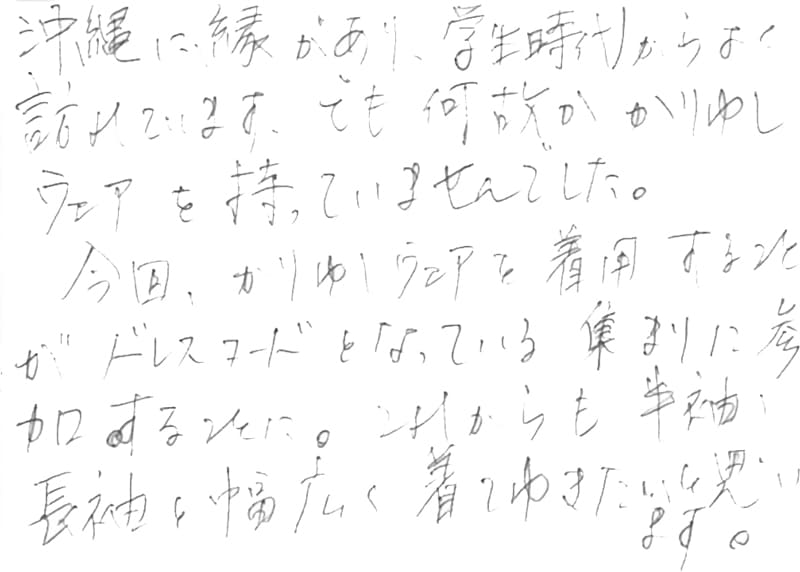 沖縄に縁があり、学生時代からよく
訪れています。でも何故かかりゆし
ウェアを持っていませんでした。
今回、かりゆしウェアを着用すること
がドレスコードとなっている集まりに参
加することに。これからも半袖、
長袖と幅広く着てゆきたいと思い
ます。